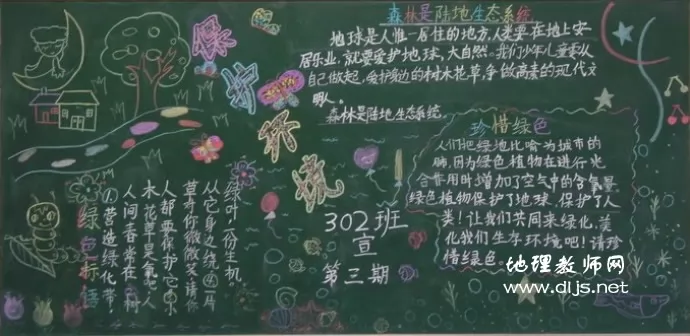 保护环境
森林是陆地生态系统
地球是人惟一居住的地方,人类要在地上安
居乐业,就要爱护地球,大自然。我们少年儿童要从
自己做起,爱护身边的树木花草,争做高素的现代文
明人。
森林是陆地生态系统
珍惜绿色
人们把绿地比喻为城市的
肺,因为绿色植物在进行光
合作用时增加了空气中的含氧量
绿色植物保护了地球,保护了人
类!让我们共同来绿化,美
化我们生存环境吧!请珍
惜绿色。
302班
宣
第三期
绿叶,一份生机。
从它身边绕
草弯你微微笑请你
人都要保护它
木花草是氧吧人
人间春常在
①营造绿化带
绿色标语
地理教师网
www.dljs.net